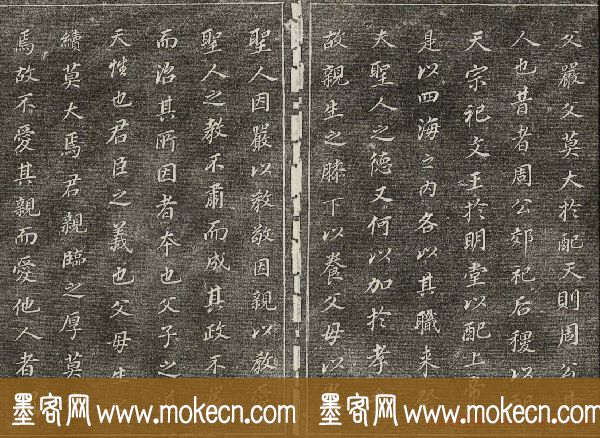 父嚴父莫大於配天則周公其
人也昔者周公郊祀后稷以配
天宗祀文王於明堂以配上帝
是以四海之內各以其職來祭
夫聖人之德又何以加於孝
故親生之膝下以養父母
聖人因嚴以教敬因親以教愛
聖人之教不肅而成其政不嚴
而治其所因者本也父子之道
天性也君臣之義也父母生
續莫大焉君親臨之厚莫
焉故不愛其親而愛他人者
墨客网 www.mokecn.com 墨客网 www.mokecn.com